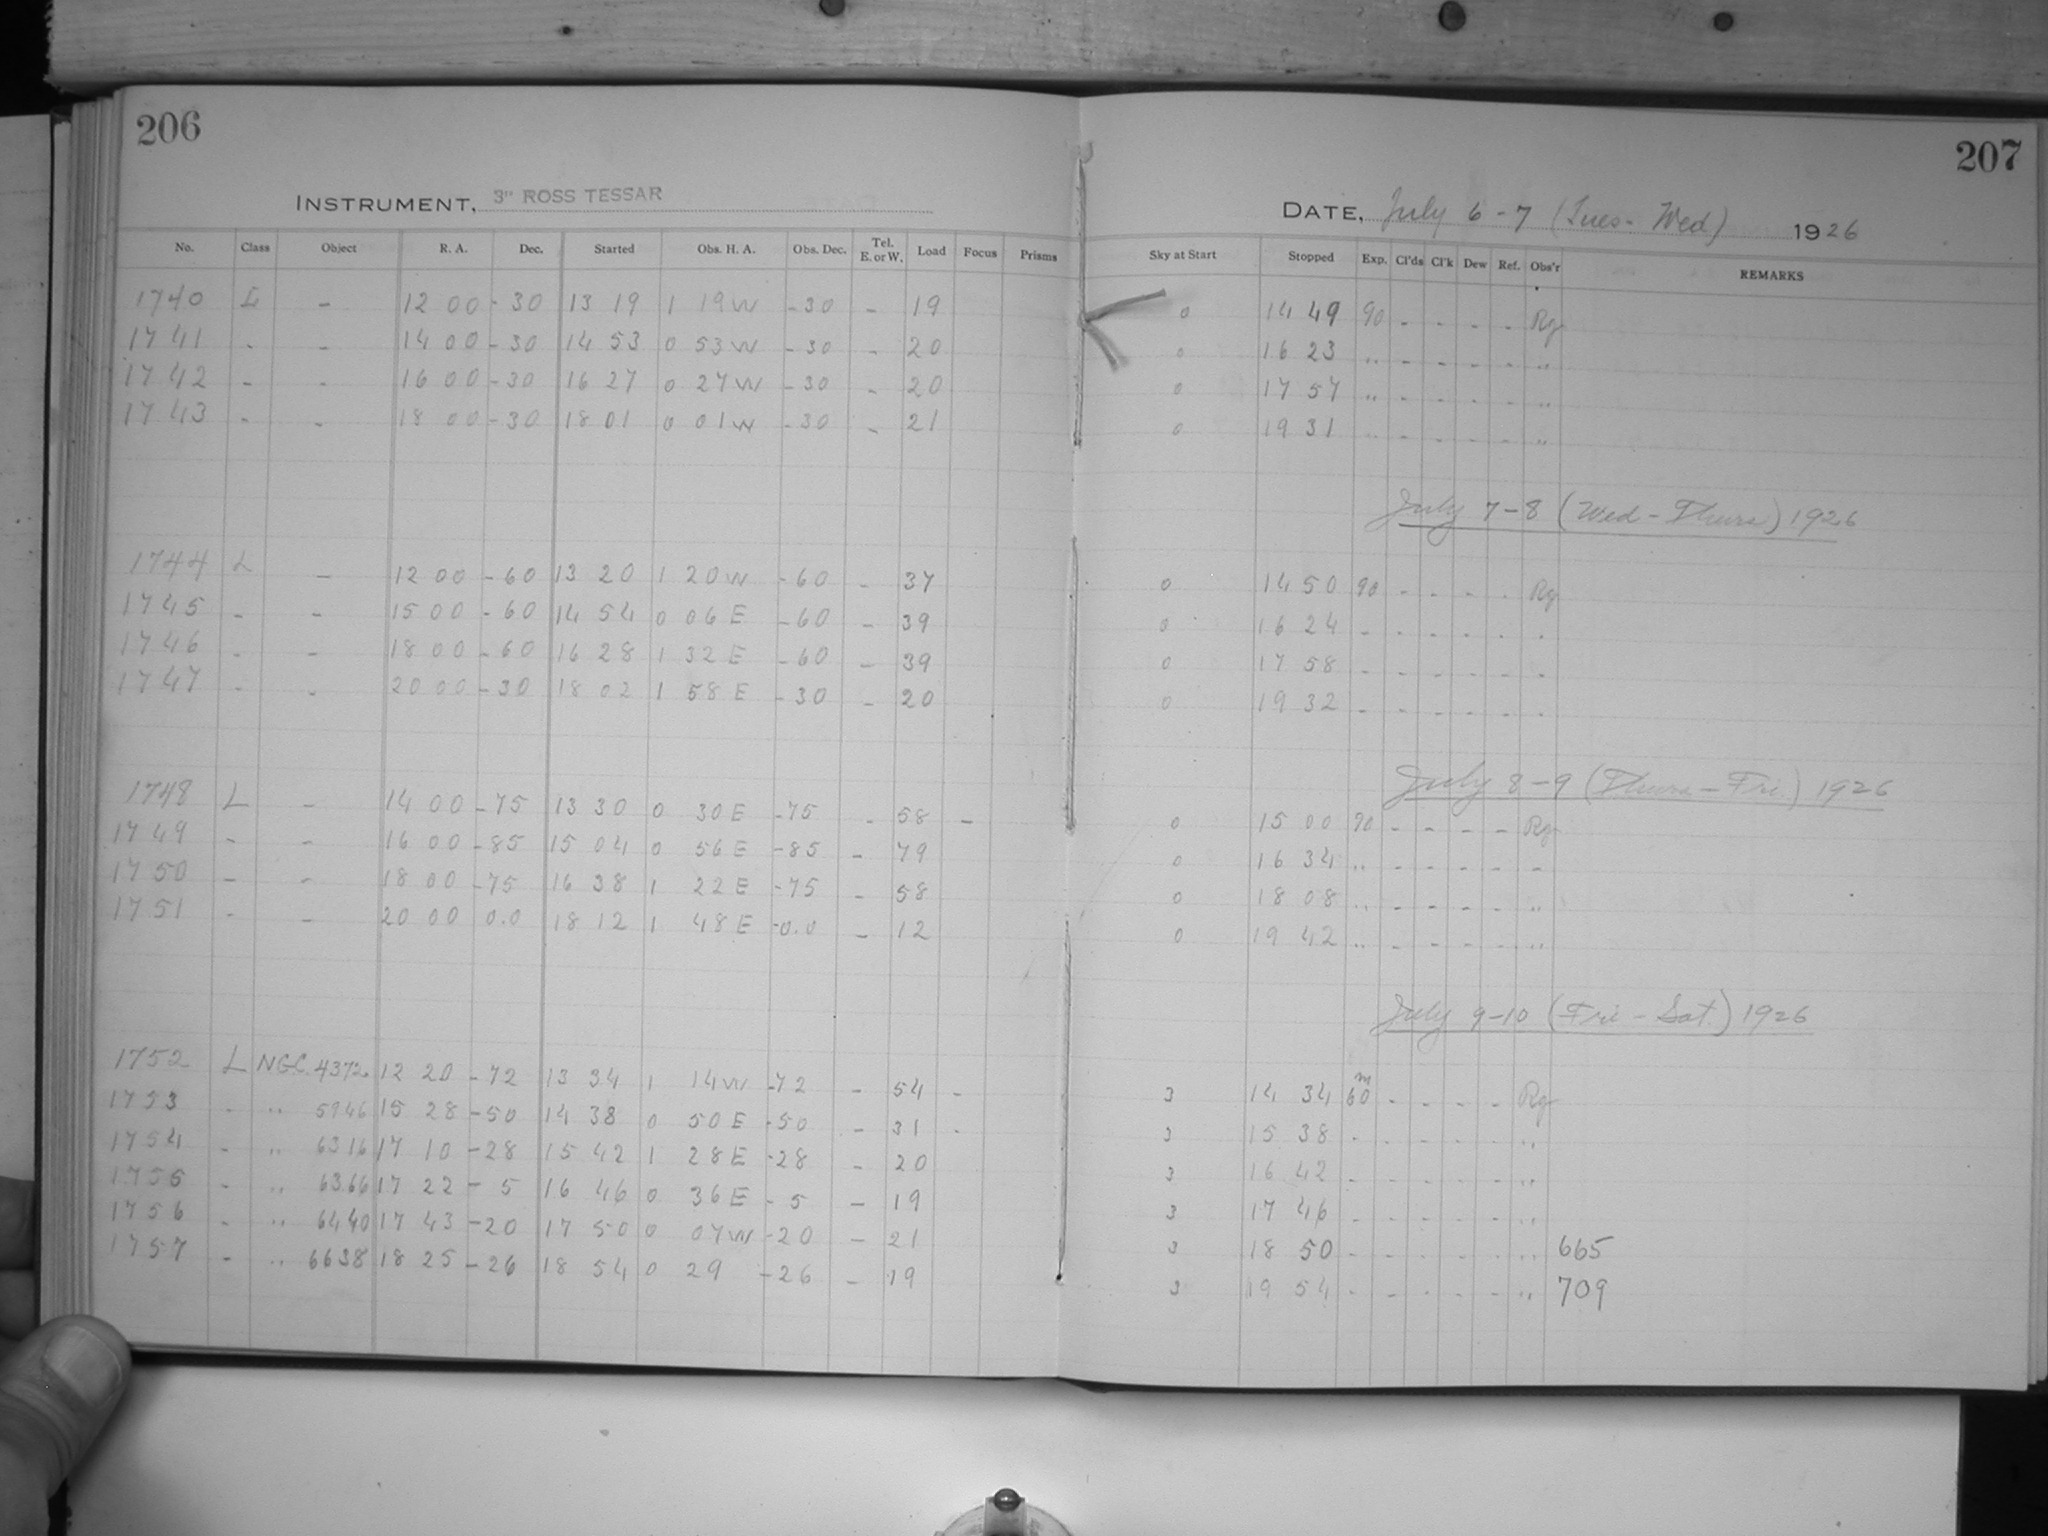 206
INSTRUMENT, 3" ROSS TESSAR
No. Class Object R. A. Dec. Started Obs. H. A. Obs. Dec. Tel. E. or W. Load Focus Prisms
1740 L - 12 00 -30 13 19 1 19 W -30 - 19
1741 - - 14 00 -30 14 53 0 53 W -30 - 20
1742 - - 16 00 -30 16 27 0 27 W -30 - 20
1743 - - 18 00 -30 18 01 0 01 W -30 - 21
1744 L - 12 00 -60 13 20 1 20 W -60 - 37
1745 - - 15 00 -60 14 54 0 06 E -60 - 39
1746 - - 18 00 -60 16 28 1 32 E -60 - 39
1747 - - 20 00 -30 18 02 1 58 E -30 - 20
1748 L - 14 00 -75 13 30 0 30 E -75 - 58 -
1749 - - 16 00 -85 15 04 0 56 E -85 - 79
1750 - - 18 00 -75 16 38 1 22 E -75 - 58
1751 - - 20 00 0.0 18 12 1 48 E -0.0 - 12
1752 L NGC 4372 12 20 -72 13 34 1 14 W -72 - 54 -
1753 - " 5946 15 28 -50 14 38 0 50 E -50 - 31 -
1754 - " 6316 17 10 -28 15 42 1 28 E -28 - 20
1755 - " 6366 17 22 -5 16 46 0 36 E -5 - 19
1756 - " 6440 17 43 -20 17 50 0 07 W -20 - 21
1757 - " 6638 18 25 -26 18 54 0 29 -26 - 19
207
DATE, July 6-7 (Tues-Wed) 1926
Sky at Start Stopped Exp. Cl'ds Cl'k Dew Ref. Obs'r REMARKS
0 14 49 90 - - - - Rg
0 16 23 " - - - - "
0 17 57 " - - - - "
0 19 31 " - - - - "
July 7-8 (Wed-Thurs) 1926
0 14 50 90 - - - - Rg
0 16 24 - - - - - -
0 17 58 - - - - - -
0 19 32 - - - - - -
July 8-9 (Thurs-Fri.) 1926
0 15 00 90 - - - - Rg
0 16 34 " - - - - -
0 18 08 " - - - - "
0 19 42 " - - - - "
July 9-10 (Fri-Sat.) 1926
3 14 34 60m - - - - Rg
3 15 38 - - - - - "
3 16 42 - - - - - "
3 17 46 - - - - - "
3 18 50 - - - - - " 665
3 19 54 - - - - - " 709